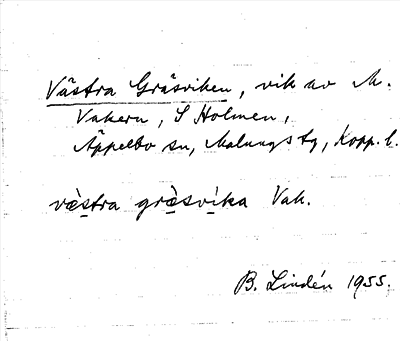 Västra Gräsviken, vik av M.
Vakern, S Holmen,
Äppelbo sn, Malungs tg, Kopp. l.
væ̀stra græ̀svíka Vak.
B. Lindén 1955.